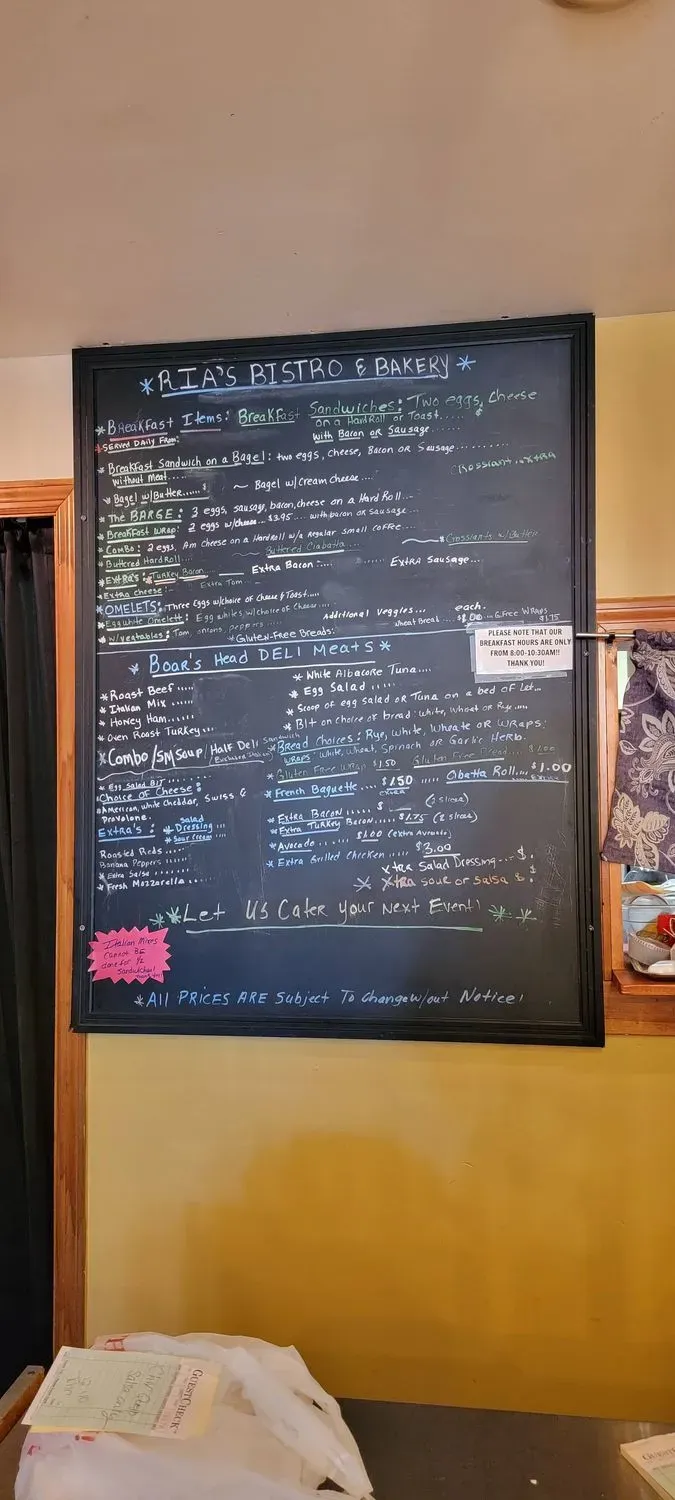 *RIA'S BISTRO & BAKERY*
*Breakfast Items: Breakfast Sandwiches: Two eggs, cheese
on a Hard Roll or Toast..... $
*SERVED DAILY FROM:
With Bacon or Sausage......
*Breakfast Sandwich on a Bagel: two eggs, cheese, Bacon or Sausage..........
Without Meat.....
Crossiant...xtra
*Bagel w/Butter.....$ ~ Bagel w/Cream cheese....
*The BARGE: 3 eggs, sausage, bacon, cheese on a Hard Roll...
*Breakfast Wrap: 2 eggs w/cheese...$3.95.... with bacon or sausage...
*Combo: 2 eggs, Am cheese on a Hard Roll w/a Regular small coffee...
*Buttered Hard Roll.... Buttered Ciabatta.... *Crossiants w/Butter
*Extra's: *Turkey Bacon.... Extra Bacon:.... Extra Sausage...
Extra cheese: Extra Tom...
*OMELETS: Three Eggs w/choice of cheese & Toast....
*Egg white Omelett: Egg whites w/choice of cheese.... Additional Veggies... each.
*w/vegtables: Tom, onions, peppers.... *Gluten-Free Breads: Wheat Bread... $1.00 ... G.Free Wraps $1.75
PLEASE NOTE THAT OUR
BREAKFAST HOURS ARE ONLY
FROM 8:00-10:30AM!!
THANK YOU!
*Boar's Head DELI Meats*
*Roast Beef.....
*Italian Mix.....
*Honey Ham.....
*Oven Roast Turkey...
*White Albacore Tuna....
*Egg Salad.....
*Scoop of egg salad or Tuna on a bed of Let...
*Blt on choice of bread: white, wheat or Rye....
*Combo/Sm Soup/Half Deli Sandwich
*Bread Choices: Rye, White, Wheate or WRAPS:
WRAPS: White, Wheat, Spinach or Garlic Herb.
*Gluten Free Wrap $1.50 Gluten Free Bread.... $1.00
*French Baguette.... $1.50 extra ..... Cibatta Roll... $1.00
*Egg Salad BLT.....
*Choice of Cheese:
*American, white cheddar, Swiss &
Provalone.
Extra's: *Salad Dressing....
*Sour Cream....
Roasted Reds.....
Banana Peppers.....
*Extra Salsa.....
*Fresh Mozzarella....
*Extra Bacon....... $ (2 slices)
*Extra Turkey Bacon..... $1.75 (2 slices)
*Avocado..... $1.00 (extra Avocado)
*Extra Grilled Chicken..... $3.00
Xtra Salad Dressing... $.
*Xtra sour or salsa $.
**Let Us Cater Your Next Event!**
Italian Mixes
Cannot BE
done for 1/2
Sandwiches!
*All PRICES ARE Subject To Change w/out Notice!
GuestCheck™